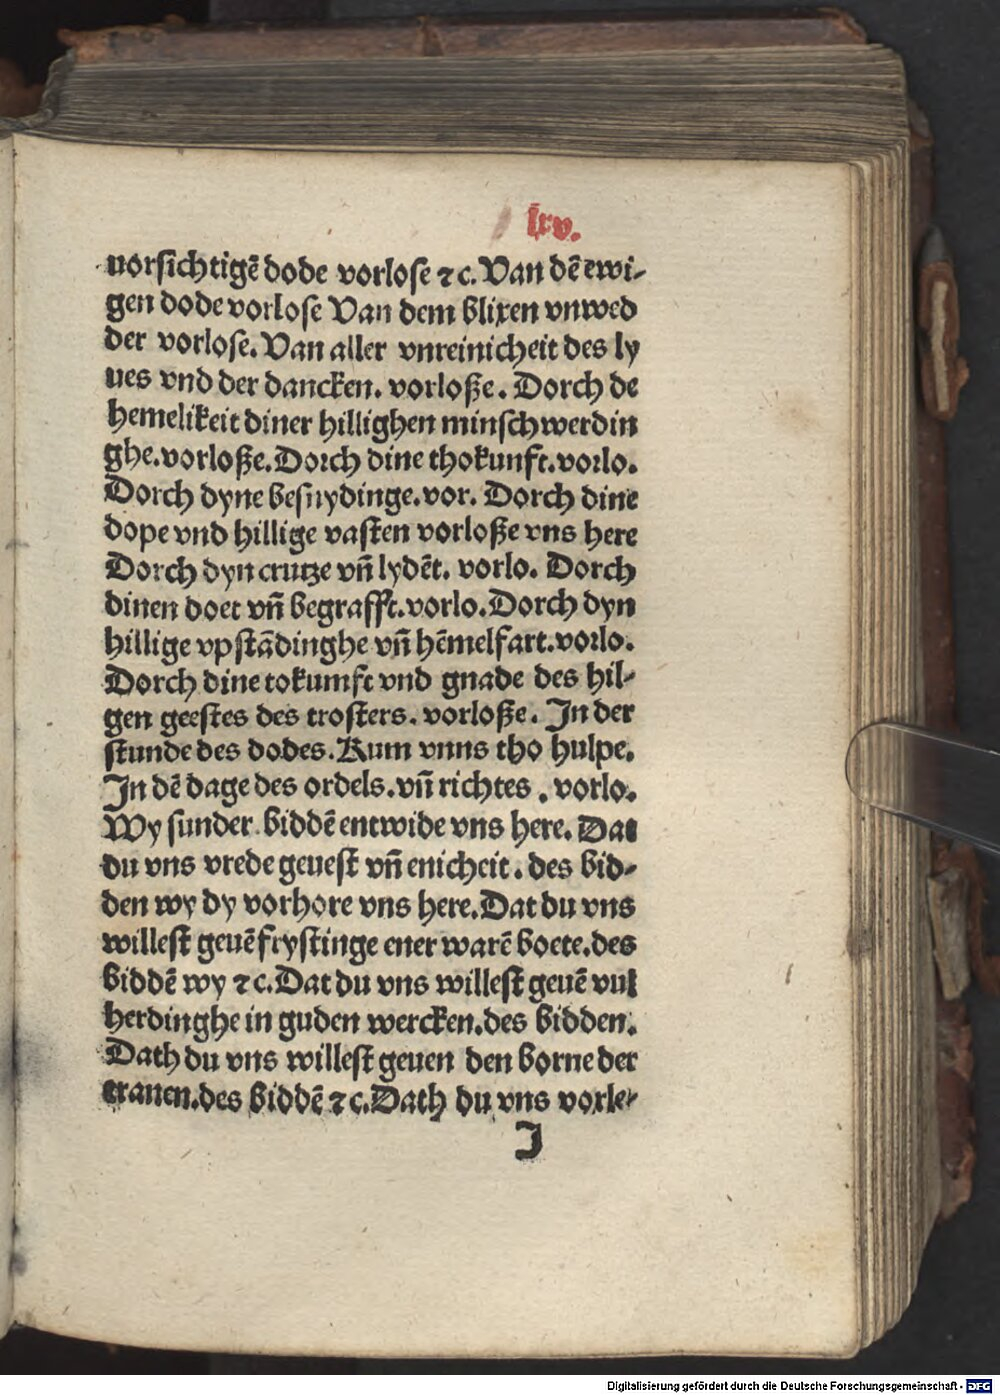 lxv.
uorsichtigē dode vorlose ⁊ c. Van dē ewi-
gen dode vorlose Van dem blixen vnwed
der vorlose. Van aller vnreinicheit des ly
ues vnd der dancken. vorloße. Dorch de
hemelikeit diner hillighen minschwerdin
ghe. vorloße. Dorch dine thokunft. vorlo.
Dorch dyne besnydinge. vor. Dorch dine
dope vnd hillige vasten vorloße vns here
Dorch dyn crutze vñ lydēt. vorlo. Dorch
dinen doet vñ begrafft. vorlo. Dorch dyn
hillige vpstādinghe vñ hēmelfart. vorlo.
Dorch dine tokumft vnd gnade des hil-
gen geestes des trosters. vorloße. In der
stunde des dodes. Kum vnns tho hulpe.
In dē dage des ordels. vñ richtes. vorlo.
Wy sunder biddē entwide vns here. Dat
du vns vrede geuest vñ enicheit. des bid-
den wy dy vorhore vns here. Dat du vns
willest geuē frystinge ener warē boete. des
biddē wy ⁊ c. Dat du vns willest geuē vul
herdinghe in guden wercken. des bidden.
Dath du vns willest geuen den borne der
tranen. des biddē ⁊ c. Dath du vns vorle-
J
Digitalisierung gefördert durch die Deutsche Forschungsgemeinschaft - DFG